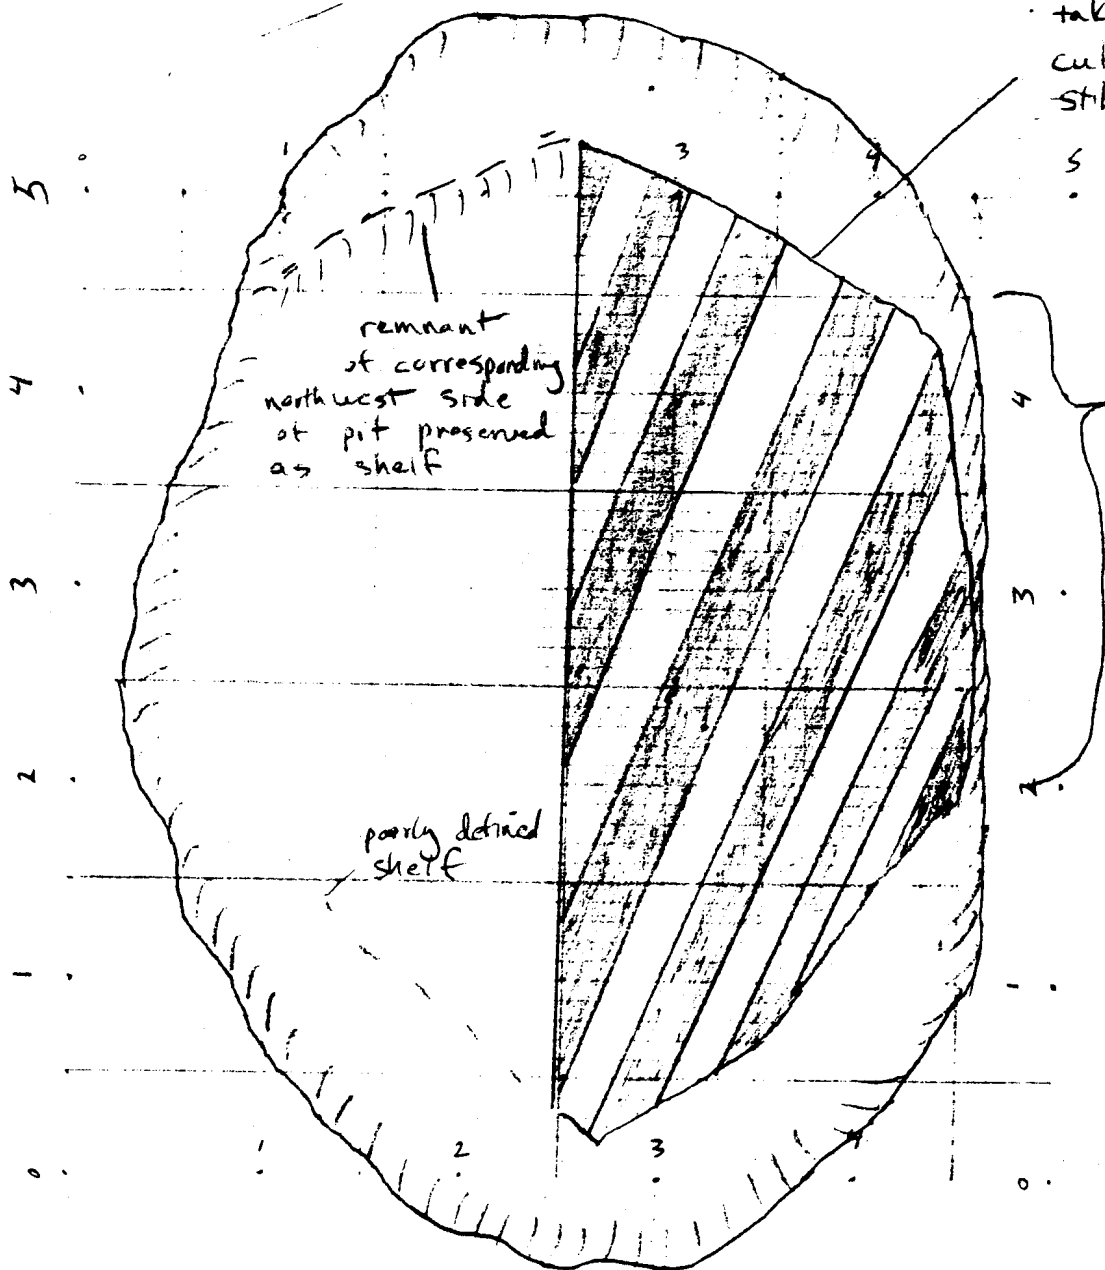 · tak
cul
stil
3
4
5
5
remnant
of corresponding
northwest side
of pit preserved
as shelf
4
4
3
3
2
2
poorly defined
shelf
1
1
2
3
4
0
0